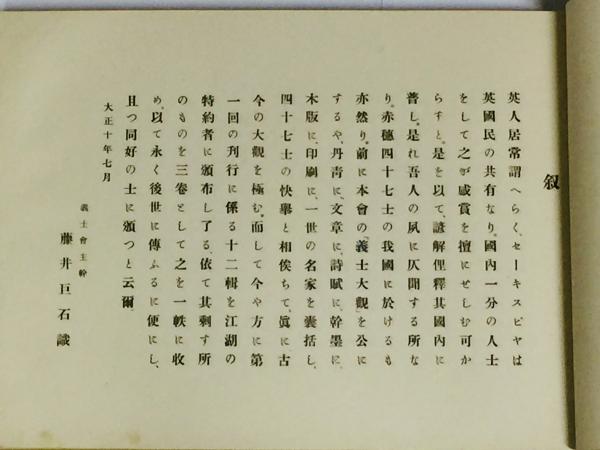 叙
英人居常謂へらく、セーキスピヤは
英國民の共有なり。國內一分の人士
をして之が感賞を擅にせしむ可か
らずと。是を以て、諺解俚釋其國內に
普し。是れ吾人の夙に仄聞する所な
り。赤穗四十七士の我國に於けるも
亦然り。前に本會の『義士大觀』を公に
するや、丹靑に、文章に、詩賦に、幹墨に、
木版に、印刷に、一世の名家を囊括し、
四十七士の快擧と相俟ちて、眞に古
今の大觀を極む。而して今や方に第
一回の刊行に係る十二輯を江湖の
特約者に頒布し了る、依て其剩す所
のものを三卷として之を一帙に收
め、以て永く後世に傳ふるに便にし、
且つ同好の士に頒つと云爾。
大正十年七月
義士會主幹
藤井巨石識